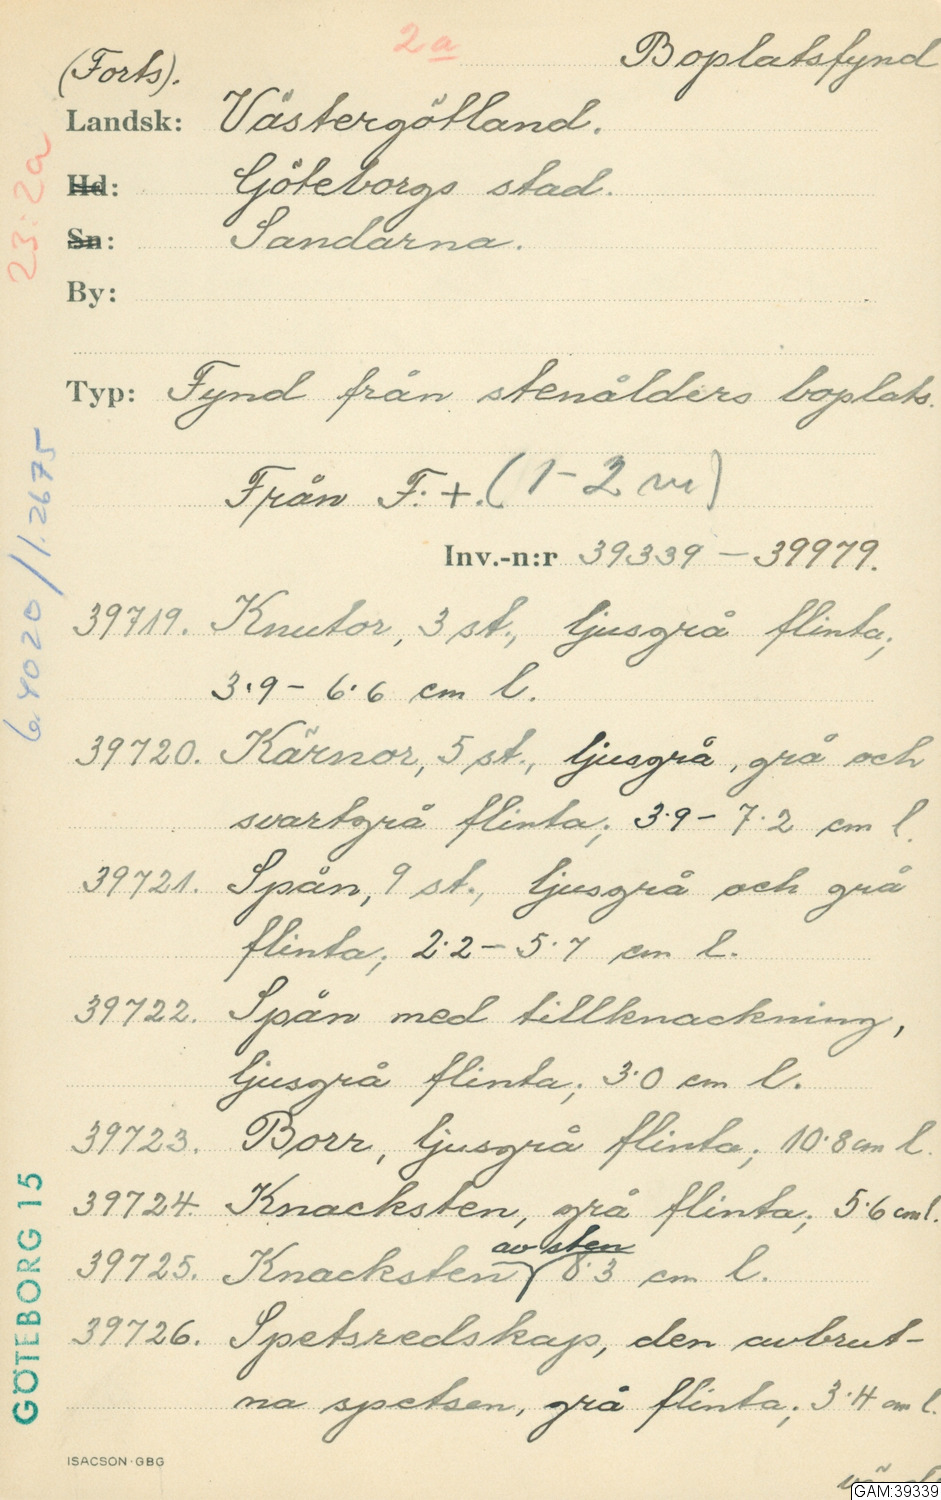 2a
Boplatsfynd
(Forts).
Landsk: Västergötland.
Hd: Göteborgs stad.
Sn: Sandarna.
By:
Typ: Fynd från stenålders boplats.
Från F:+. (1-2 m)
Inv.-n:r 39339 — 39979.
39719. Knutor, 3 st., ljusgrå flinta;
3·9 – 6·6 cm l.
39720. Kärnor, 5 st., ljusgrå, grå och
svartgrå flinta; 3·9 – 7·2 cm l.
39721. Spån, 9 st., ljusgrå och grå
flinta; 2·2 – 5·7 cm l.
39722. Spån med tillknackning,
ljusgrå flinta; 3·0 cm l.
39723. Borr, ljusgrå flinta; 10·8 cm l.
39724. Knacksten, grå flinta; 5·6 cm l.
av sten
39725. Knacksten 8·3 cm l.
39726. Spetsredskap, den avbrut-
na spetsen, grå flinta; 3·4 cm l.
ISACSON·GBG
GAM:39339
23:2a
6.4020/1.2675
GÖTEBORG 15